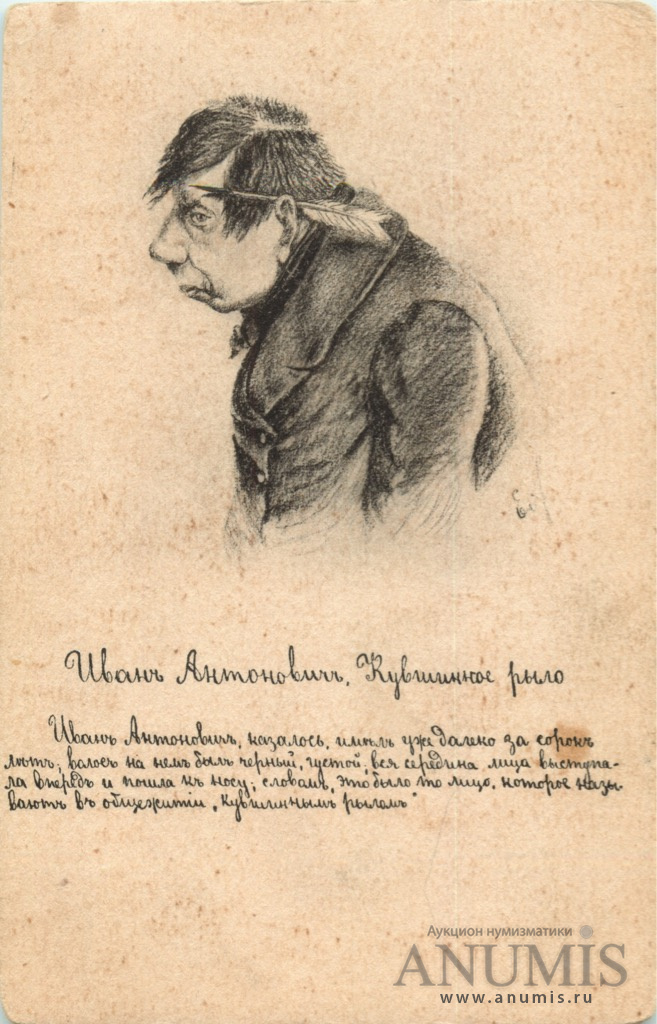 Иванъ Антоновичъ, Кувшинное рыло
Иванъ Антоновичъ, казалось, имѣлъ уже далеко за сорокъ
лѣтъ; волосъ на немъ былъ черный, густой, вся середина лица выступа-
ла впередъ и пошла къ носу; словомъ, это было то лицо, которое назы-
ваютъ въ общежитіи „кувшиннымъ рыломъ"
Аукцион нумизматики
ANUMIS
www.anumis.ru